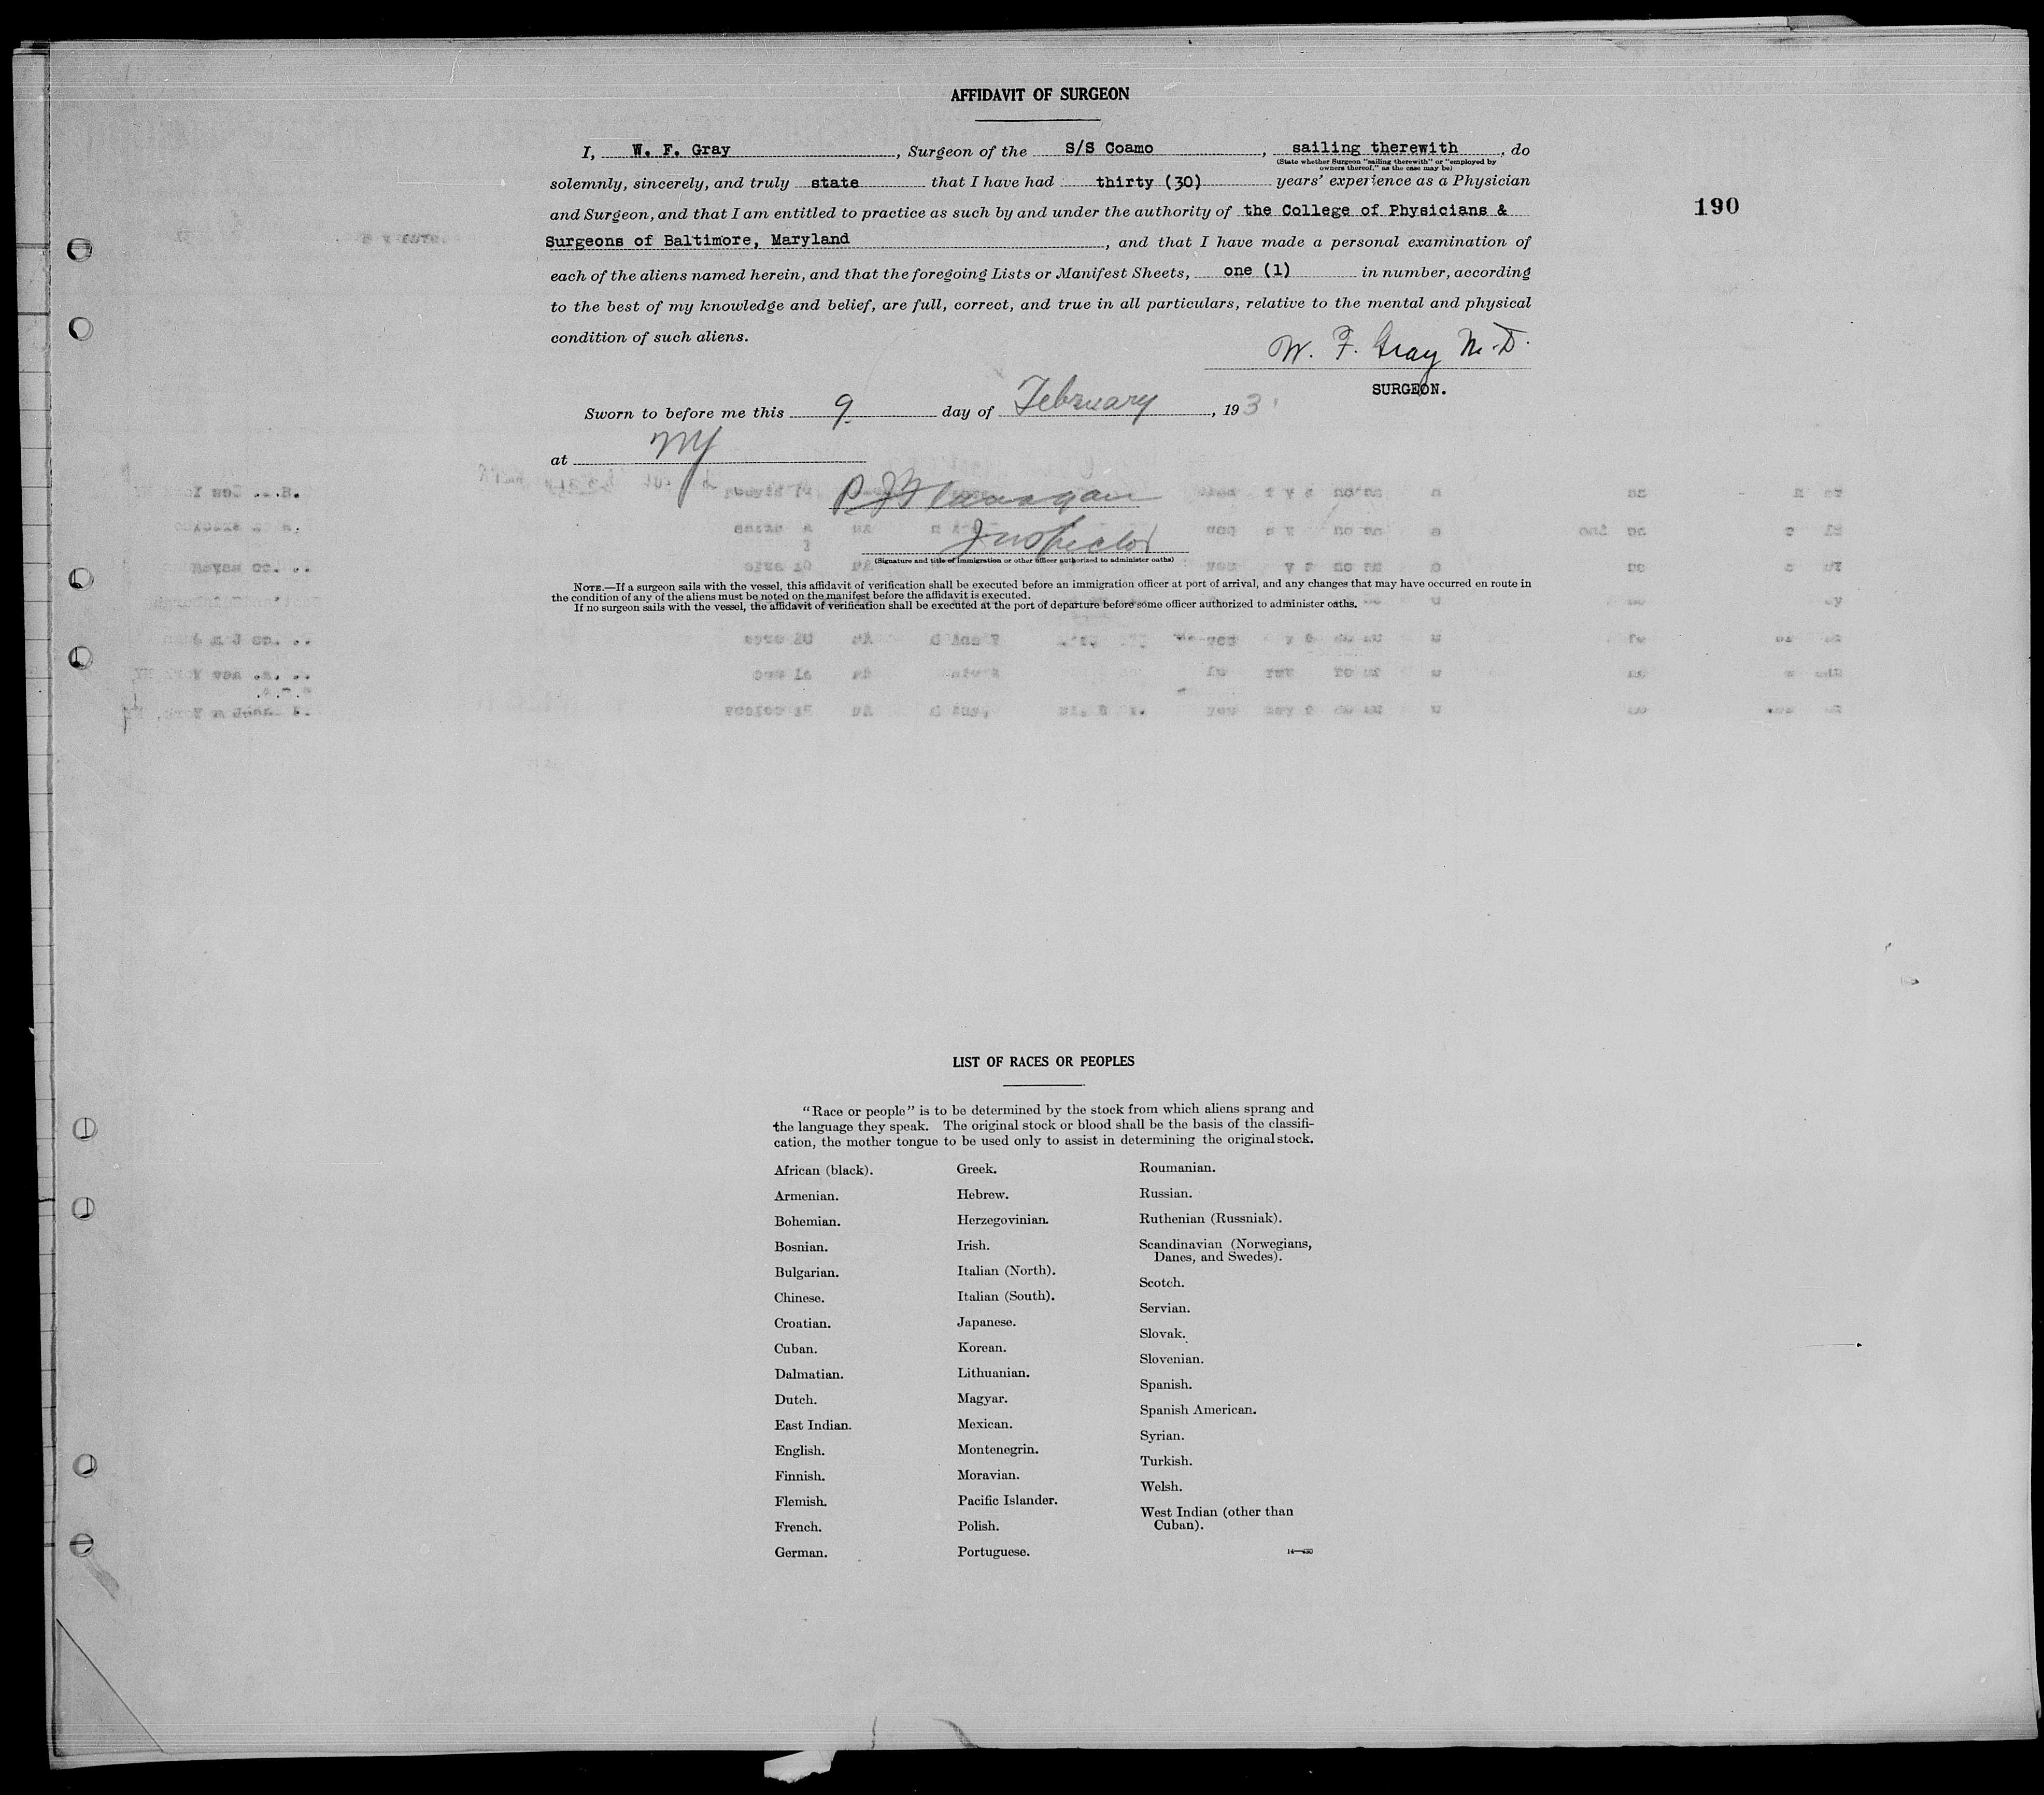 AFFIDAVIT OF SURGEON
I, W. F. Gray, Surgeon of the S/S Coamo, sailing therewith, do
(State whether Surgeon "sailing therewith" or "employed by
owners thereof," as the case may be)
solemnly, sincerely, and truly state that I have had thirty (30) years' experience as a Physician
and Surgeon, and that I am entitled to practice as such by and under the authority of the College of Physicians &
190
Surgeons of Baltimore, Maryland, and that I have made a personal examination of
each of the aliens named herein, and that the foregoing Lists or Manifest Sheets, one (1) in number, according
to the best of my knowledge and belief, are full, correct, and true in all particulars, relative to the mental and physical
condition of such aliens.
W. F. Gray M.D.
SURGEON.
Sworn to before me this 9 day of February, 193
at NY
Inspector
(Signature and title of immigration or other officer authorized to administer oaths)
NOTE.—If a surgeon sails with the vessel, this affidavit of verification shall be executed before an immigration officer at port of arrival, and any changes that may have occurred en route in
the condition of any of the aliens must be noted on the manifest before the affidavit is executed.
If no surgeon sails with the vessel, the affidavit of verification shall be executed at the port of departure before some officer authorized to administer oaths.
LIST OF RACES OR PEOPLES
"Race or people" is to be determined by the stock from which aliens sprang and
the language they speak. The original stock or blood shall be the basis of the classifi-
cation, the mother tongue to be used only to assist in determining the original stock.
African (black).
Armenian.
Bohemian.
Bosnian.
Bulgarian.
Chinese.
Croatian.
Cuban.
Dalmatian.
Dutch.
East Indian.
English.
Finnish.
Flemish.
French.
German.
Greek.
Hebrew.
Herzegovinian.
Irish.
Italian (North).
Italian (South).
Japanese.
Korean.
Lithuanian.
Magyar.
Mexican.
Montenegrin.
Moravian.
Pacific Islander.
Polish.
Portuguese.
Roumanian.
Russian.
Ruthenian (Russniak).
Scandinavian (Norwegians,
Danes, and Swedes).
Scotch.
Servian.
Slovak.
Slovenian.
Spanish.
Spanish American.
Syrian.
Turkish.
Welsh.
West Indian (other than
Cuban).